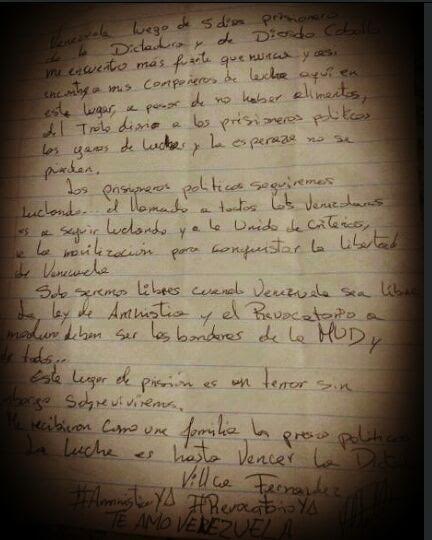 Venezuela luego de 5 dias prisionero
de la Dictadura y de Diosdado Cabello
me encuentro más fuerte que nunca y asi
encontre a mis compañeros de lucha aquí en
este lugar, a pesar de no haber alimentos,
del Trato diario a los prisioneros politicos
las ganas de luchar y la esperaza no se
pierden.
Los prisioneros politicos seguiremos
luchando... el llamado a todos los Venezolanos
es a seguir luchando y a la Unido de criterios,
a la movilización para conquistar la libertad
de Venezuela
Solo seremos libres cuando Venezuela sea libre
La ley de Amnistia y el Revocatorio a
maduro deben ser las banderas de la MUD y
de todos..
Este lugar de prisión es un terror sin
embargo Sobreviviremos.
Me recibieron como una familia los presos politicos
La lucha es hasta Vencer la
Villca Fernandez
#AmnistiaYA #RevocatorioYA
TE AMO VENEZUELA